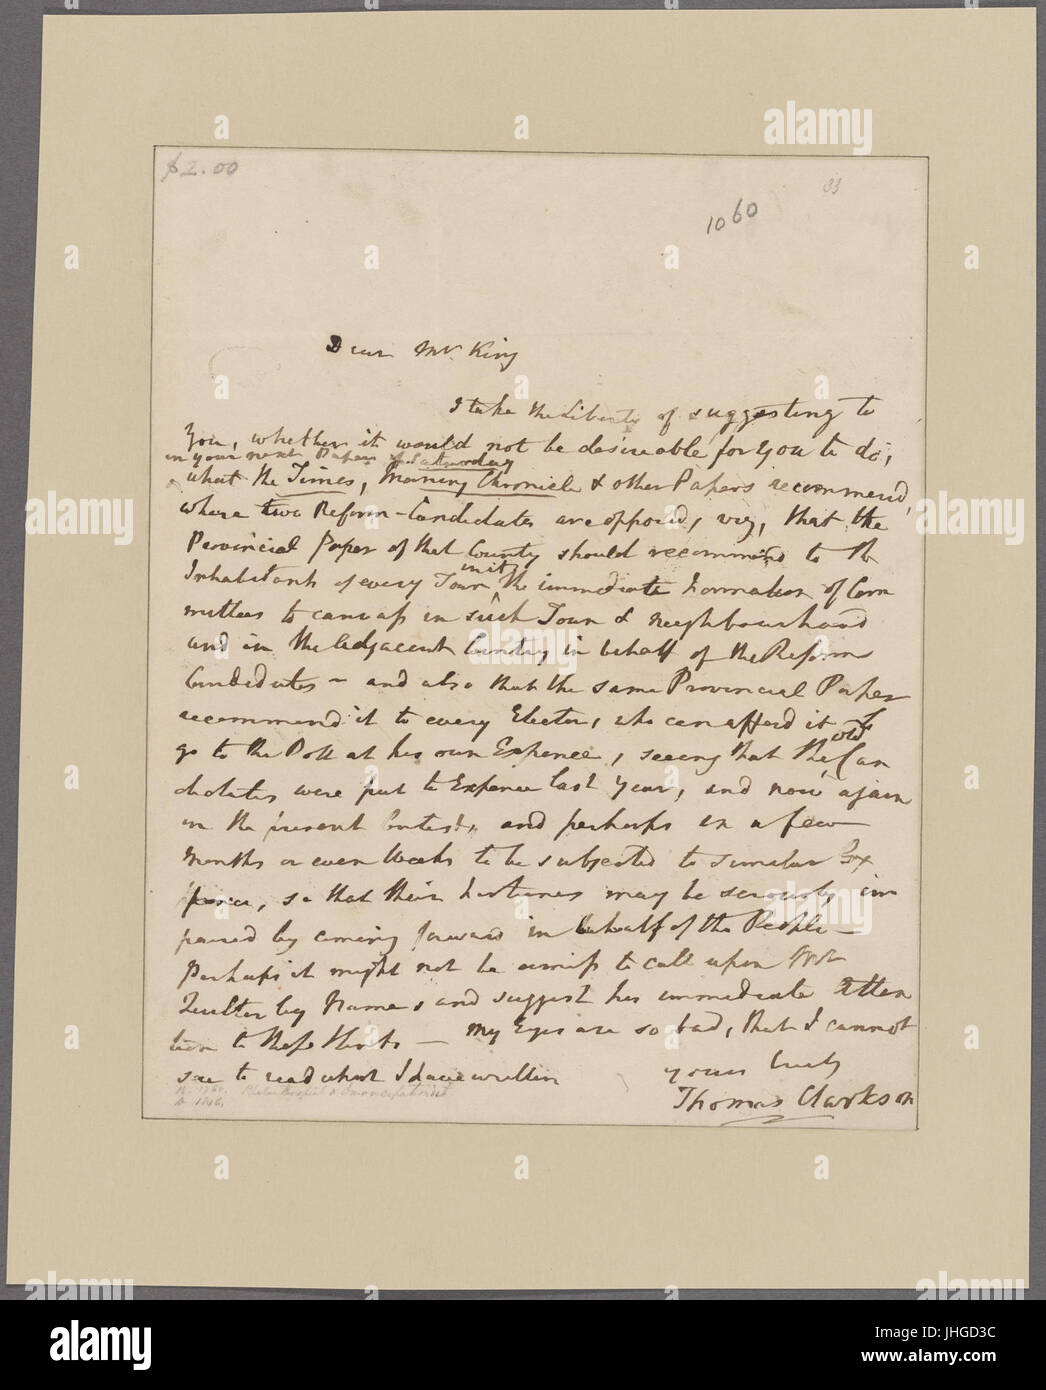 $2.00
33
1060
Dear Mr King
I take the Liberty of suggesting to
You, whether it would not be desireable for You to do,
in your next Paper of Saturday
what the Times, Morning Chronicle & other Papers recommend,
where two Reform-Candidates are opposed, viz, that the
Provincial Paper of that County should recommend to the
Inhabitants of every Town in it
the immediate Formation of Com
mittees to canvass in such Town & neighbourhood
and in the adjacent Country in behalf of the Reform
Candidates - and also that the same Provincial Paper
recommend it to every Elector, who can afford it to
go to the Poll at his own Expence, seeing that the old Can
didates were put to Expence last Year, and now again
in the present Contest, and perhaps in a few
Months or even Weeks to be subjected to similar Ex
pence, so that their Fortunes may be seriously im
paired by coming forward in behalf of the People -
Perhaps it might not be amiss to call upon
by Name and suggest his immediate Atten
tion to these Hints - My Eyes are so bad, that I cannot
see to read what I have written
yours truly
Thomas Clarkson
B. 1760.
D. 1846.
alamy
a
alamy stock photo
Image ID: JHGD3C
www.alamy.com